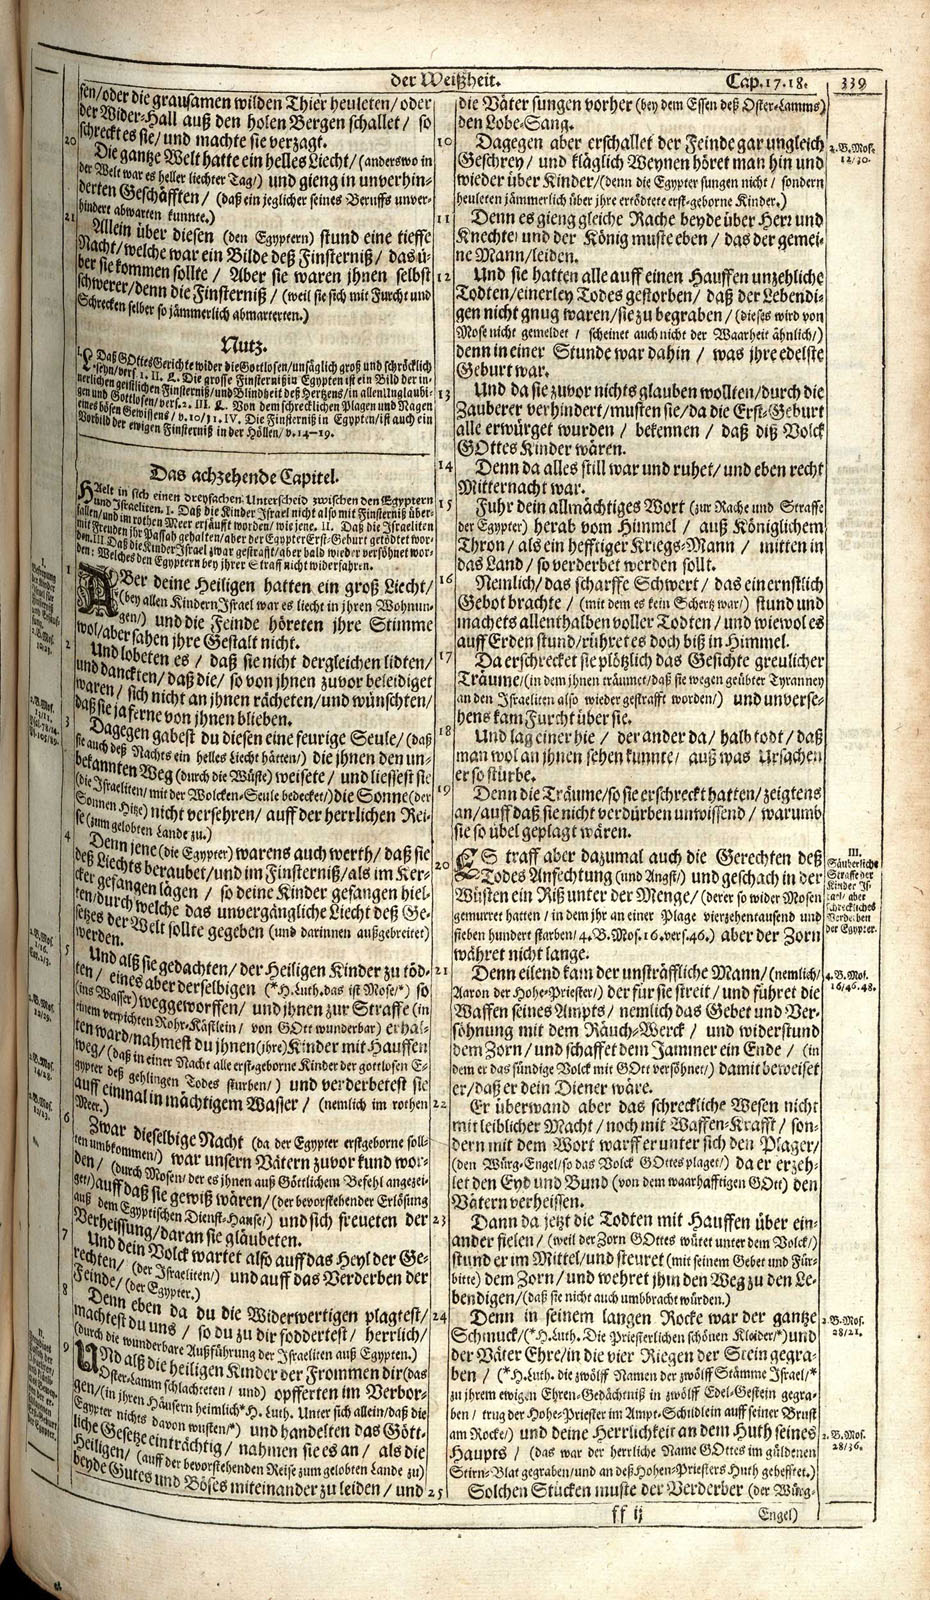 der Weißheit.
Cap. 17. 18.
339
sen/oder die grausamen wilden Thier heuleten/oder
der Wider-Hall auß den holen Bergen schallet/ so
schreckt es sie/und machte sie verzagt.
20 Die gantze Welt hatte ein helles Liecht/(anderswo in
der Welt war es heller liechter Tag/) und gieng in unverhin-
derten Geschäfften/ (daß ein jeglicher seines Beruffs unver-
hindert abwarten kunnte.)
21 Allein über diesen (den Egyptern) stund eine tieffe
Nacht/welche war ein Bilde deß Finsterniß/das ü-
ber sie kommen sollte/ Aber sie waren jhnen selbst
schwerer/denn die Finsterniß/ (weil sie sich mit Furcht und
Schrecken selber so jämmerlich abmarterten.)
Nutz.
I. L. Daß GOttes Gerichte wider die Gottlosen/unsäglich groß und schröcklich
seyn/vers. 1. II. L. Die grosse Finsterniß in Egypten ist ein Bild der in-
nerlichen geistlichen Finsterniß/und Blindheit deß Hertzens/in allen Unglaubi-
gen und Gottlosen/vers. 2. III. L. Von dem schrecklichen Plagen und Nagen
eines bösen Gewissens/v. 10/11. IV. Die Finsterniß in Egypten/ist auch ein
Vorbild der ewigen Finsterniß in der Höllen/v. 14-19.
Das achzehende Capitel.
HAelt in sich einen dreyfachen Unterscheid zwischen den Egyptern
und Israeliten. I. Daß die Kinder Israel nicht also mit Finsterniß über-
fallen/und im rothen Meer ersäufft worden/wie jene. II. Daß die Israeliten
mit Freuden jhr Passah gehalten/aber der Egypter Erst-Geburt getödtet wor-
den. III Daß die Kinder Israel zwar gestrafft/aber bald wieder versöhnet wor-
den: Welches den Egyptern bey jhrer Straff nicht widerfahren.
1 ABer deine Heiligen hatten ein groß Liecht/
(bey allen Kindern Israel war es liecht in jhren Wohnun-
gen/) und die Feinde höreten jhre Stimme
wol/aber sahen jhre Gestalt nicht.
2 Und lobeten es/ daß sie nicht dergleichen lidten/
und danckten/daß die/ so von jhnen zuvor beleidiget
waren/ sich nicht an jhnen rächeten/und wünschten/
daß sie ja ferne von jhnen blieben.
3 Dagegen gabest du diesen eine feurige Seule/(daß
sie auch deß Nachts ein helles Liecht hätten/) die jhnen den un-
bekannten Weg (durch die Wüste) weisete/ und liessest sie
(die Israeliten/mit der Wolcken-Seule bedecket/) die Sonne (der
Sonnen Hitze) nicht versehren/ auff der herrlichen Rei-
se (zum gelobten Lande zu.)
4 Denn jene (die Egypter) warens auch werth/ daß sie
deß Liechts beraubet/und im Finsterniß/als im Ker-
cker gefangen lägen/ so deine Kinder gefangen hiel-
ten/durch welche das unvergängliche Liecht deß Ge-
setzes der Welt sollte gegeben (und darinnen außgebreitet)
werden.
5 Und alß sie gedachten/der Heiligen Kinder zu töd-
ten/ eines aber derselbigen (*H. Luth. das ist Mose/*) so
(ins Wasser) weggeworffen/ und jhnen zur Straffe (in
einem verpichten Rohr-Kästlein/ von GOtt wunderbar) erhal-
ten ward/nahmest du jhnen (jhre) Kinder mit Hauffen
weg/ (daß in einer Nacht alle erst-geborne Kinder der gottlosen E-
gypter deß gehlingen Todes sturben/) und verderbetest sie
auff einmal in mächtigem Wasser/ (nemlich im rothen
Meer.)
6 Zwar dieselbige Nacht (da der Egypter erstgeborne soll-
ten umbkommen/) war unsern Vätern zuvor kund wor-
den/ (durch Mosen/der es jhnen auß Göttlichem Befehl angezei-
get/) auff daß sie gewiß wären/ (der bevorstehender Erlösung
auß dem Egyptischen Dienst-Hause/) und sich freueten der
Verheissung/daran sie gläubeten.
7 Und dein Volck wartet also auff das Heyl der Ge-
rechten/ (der Israeliten/) und auff das Verderben der
Feinde/ (der Egypter.)
8 Denn eben da du die Widerwertigen plagtest/
machtest du uns/ so du zu dir foddertest/ herrlich/
(durch die wunderbare Außführung der Israeliten auß Egypten.)
9 UNd alß die heiligen Kinder der Frommen dir (das
Oster-Lamm schlachteten/ und) opfferten im Verbor-
gen/ (in jhren Häusern heimlich *H. Luth. Unter sich allein/daß die
Egypter nichts davon wusten/*) und handelten das Gött-
liche Gesetze einträchtig/ nahmen sie es an/ als die
Heiligen/ (auff der bevorstehenden Reise zum gelobten Lande zu)
beyde Gutes und Böses miteinander zu leiden/ und
die Väter sungen vorher (bey dem Essen deß Oster-Lamms)
den Lobe-Sang.
10 Dagegen aber erschallet der Feinde gar ungleich
Geschrey/ und kläglich Weynen höret man hin und
wieder über Kinder/(denn die Egypter sungen nicht/ sondern
heuleten jämmerlich über jhre ertödtete erst-geborne Kinder.)
11 Denn es gieng gleiche Rache beyde über Herr und
Knechte/ und der König muste eben/ das der gemei-
ne Mann/leiden.
12 Und sie hatten alle auff einen Hauffen unzehliche
Todten/einerley Todes gestorben/ daß der Lebendi-
gen nicht gnug waren/sie zu begraben/ (dieses wird von
Mose nicht gemeldet/ scheinet auch nicht der Waarheit ähnlich/)
denn in einer Stunde war dahin/ was jhre edelste
Geburt war.
13 Und da sie zuvor nichts glauben wollten/durch die
Zauberer verhindert/musten sie/da die Erst-Geburt
alle erwürget wurden/ bekennen/ daß diß Volck
GOttes Kinder wären.
14 Denn da alles still war und ruhet/und eben recht
Mitternacht war.
15 Fuhr dein allmächtiges Wort (zur Rache und Straffe
der Egypter) herab vom Himmel/ auß Königlichem
Thron/als ein hefftiger Kriegs-Mann/ mitten in
das Land/ so verderbet werden sollt.
16 Nemlich/das scharffe Schwert/ das ein ernstlich
Gebot brachte/ (mit dem es kein Schertz war/) stund und
machets allenthalben voller Todten/ und wiewol es
auff Erden stund/rühret es doch biß in Himmel.
17 Da erschrecket sie plötzlich das Gesichte greulicher
Träume/(in dem jhnen träumet/daß sie wegen geübter Tyranney
an den Israeliten also wieder gestrafft worden/) und unverse-
hens kam Furcht über sie.
18 Und lag einer hie/ der ander da/ halb todt/ daß
man wol an jhnen sehen kunnte/ auß was Ursachen
er so stürbe.
19 Denn die Träume/so sie erschreckt hatten/ zeigtens
an/auff daß sie nicht verdürben unwissend/ warumb
sie so übel geplagt wären.
20 ES traff aber dazumal auch die Gerechten deß
Todes Anfechtung (und Angst/) und geschach in der
Wüsten ein Riß unter der Menge/ (derer so wider Mosen
gemurret hatten/ in dem jhr an einer Plage vierzehentausend und
sieben hundert storben/4. B. Mos. 16. vers. 46.) aber der Zorn
währet nicht lange.
21 Denn eilend kam der unsträffliche Mann/(nemlich/
Aaron der Hohe-Priester/) der für sie streit/ und führet die
Waffen seines Ampts/ nemlich das Gebet und Ver-
söhnung mit dem Räuch-Werck/ und widerstund
dem Zorn/ und schaffet dem Jammer ein Ende/ (in
dem er das sündige Volck mit GOtt versöhnet/) damit beweiset
er/daß er dein Diener wäre.
22 Er überwand aber das schreckliche Wesen nicht
mit leiblicher Macht/ noch mit Waffen-Krafft/ son-
dern mit dem Wort warff er unter sich den Plager/
(den Würg-Engel/so das Volck GOttes plaget/) da er erzeh-
let den Eyd und Bund (von dem waarhafftigen GOtt) den
Vätern verheissen.
23 Dann da jetzt die Todten mit Hauffen über ein-
ander fielen/ (weil der Zorn GOttes wütet unter dem Volck/)
stund er im Mittel/und steuret (mit seinem Gebet und Für-
bitte) dem Zorn/ und wehret jhm den Weg zu den Le-
bendigen/(daß sie nicht auch umbbracht würden.)
24 Denn in seinem langen Rocke war der gantze
Schmuck/(*H. Luth. Die Priesterlichen schönen Kleider/*) und
der Väter Ehre/in die vier Riegen der Stein gegra-
ben/ (*H. Luth. die zwölff Namen der zwölff Stämme Israel/*
zu jhrem ewigen Ehren-Gedächtniß in zwölff Edel-Gestein gegra-
ben/ trug der Hohe-Priester im Ampt-Schildlein auff seiner Brust
am Rocke/) und deine Herrlichkeit an dem Huth seines
Haupts/ (das war der herrliche Name GOttes im güldenen
Stirn-Blat gegraben/und an deß Hohen-Priesters Huth gehefftet.)
25 Solchen Stücken muste der Verderber (der Würg-
ff ij
Engel)
2. B. Mos.
12/30.
III.
Säuberliche
Straffe der
Kinder Is-
rael/ aber
schreckliches
Verderben
der Egypter.
4. B. Mos.
16/46.48.
2. B. Mos.
28/21.
2. B. Mos.
28/36.